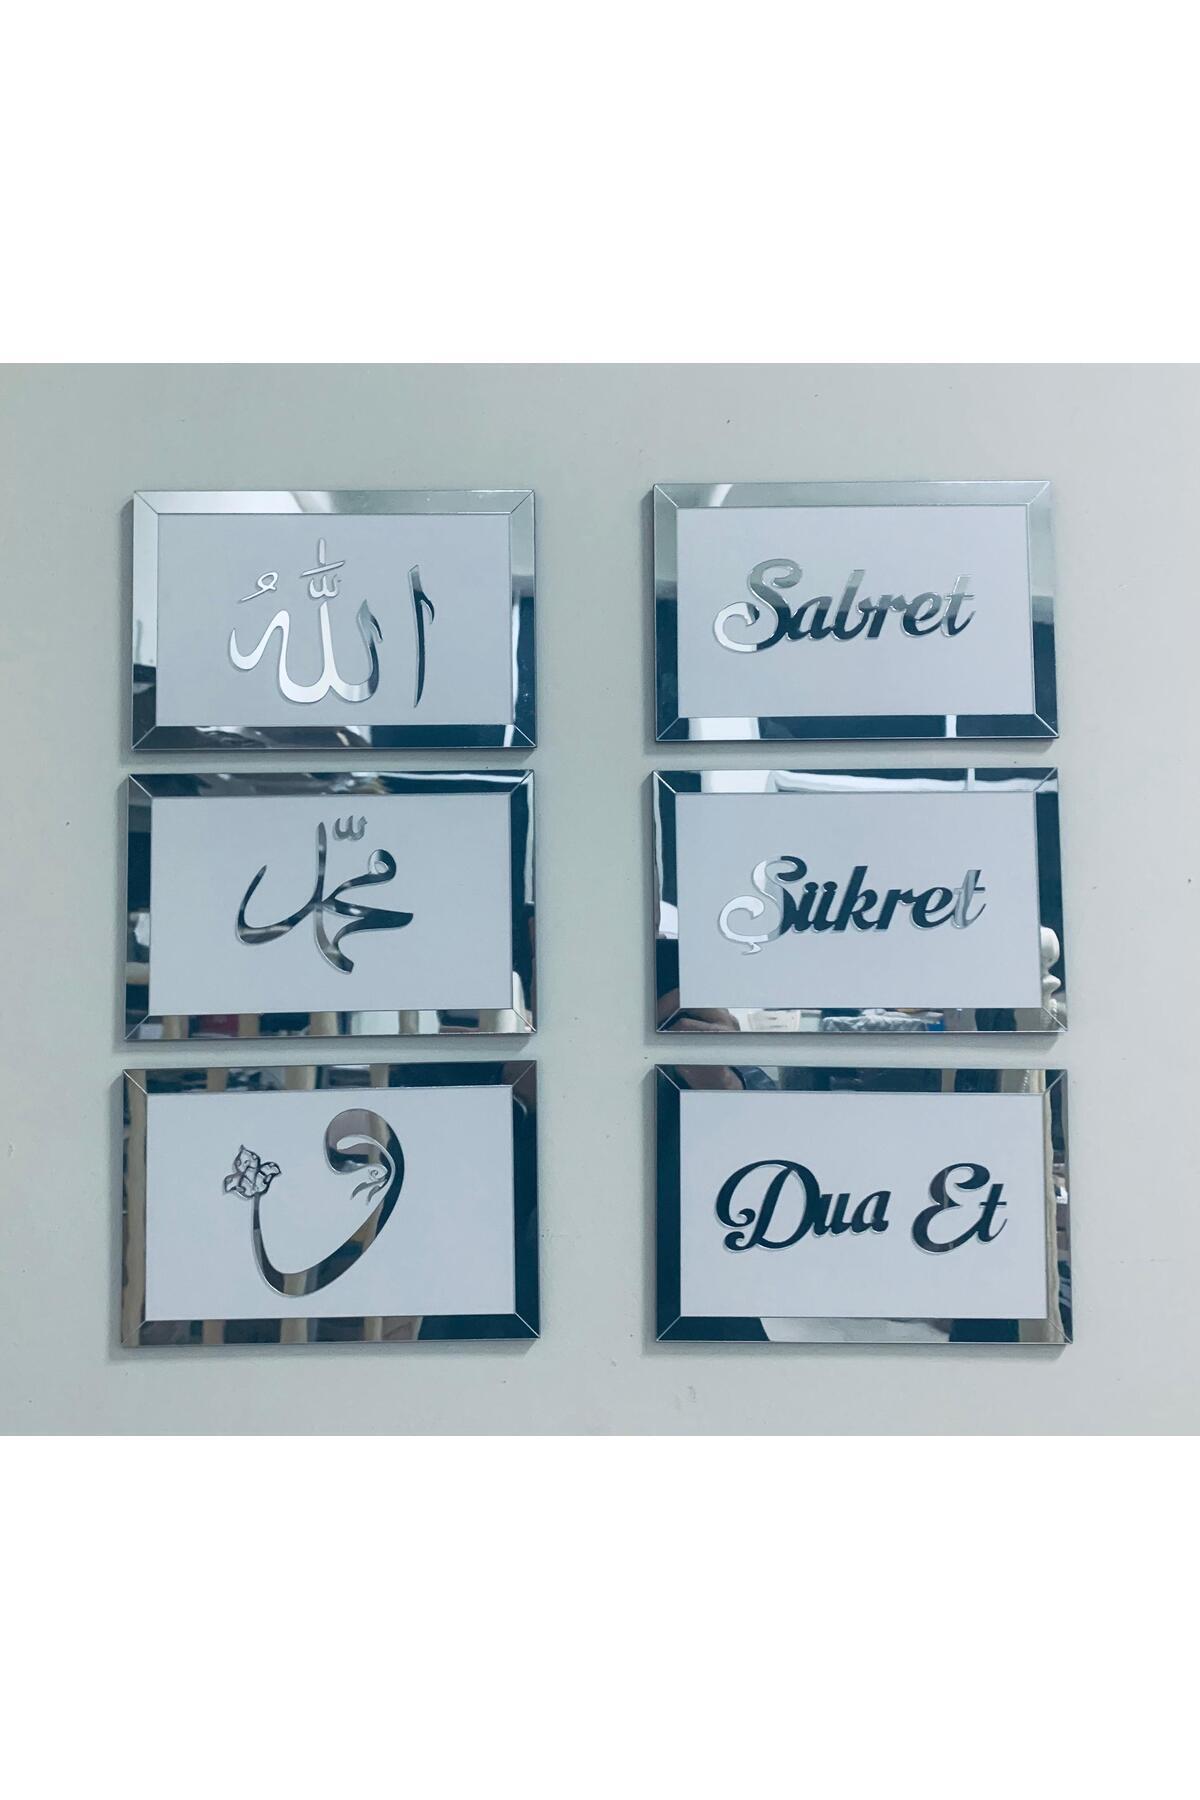 الله
Sabret
محمد
Şükret
و
Dua Et